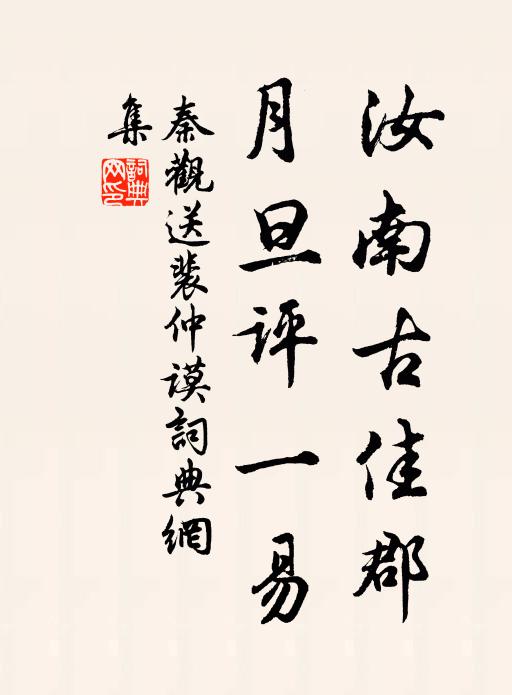 汝南古佳郡
月旦評一易
秦觀送裴仲謨詞典網
集
詞典網印